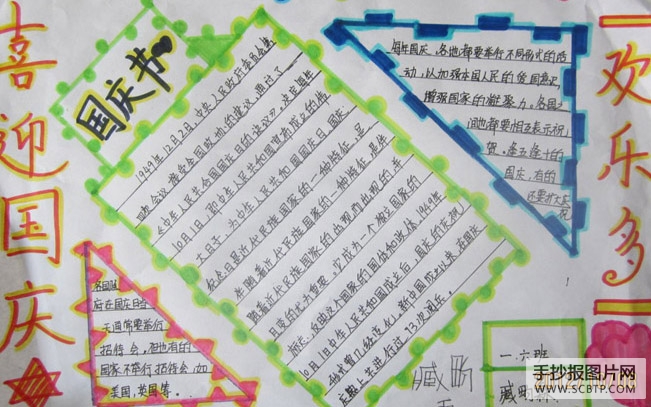 喜迎国庆
国庆节
1949年12月2日，中央人民政府委员会第
四次会议接受全国政协的建议，通过了
《中华人民共和国国庆日的决议》，决定每年
10月1日，即中华人民共和国宣布成立的伟
大日子，为中华人民共和国国庆日。国庆
纪念日是近代民族国家的一种特征，是
伴随着近代民族国家的出现而出现的，并
且变的尤为重要。它成为一个独立国家的
标志，反映这个国家的国体和政体。1949年
10月1日中华人民共和国成立后，国庆的庆祝
形式曾几经变化。新中国成立以来，在国庆
上共进行过13次阅兵。
每年国庆，各地都要举行不同形式的活
动，以加强本国人民的爱国意识，
增强国家的凝聚力。各国之
间也都要相互表示祝
贺。逢五逢十的
国庆，有的
还要扩大庆
欢乐多
各国政
府在国庆日当
天通常要举行
招待会，但也有的
国家不举行招待会，如
美国，英国等。
臧昀
一.六班
臧昀
手抄报图片网
WWW.SCBTP.COM